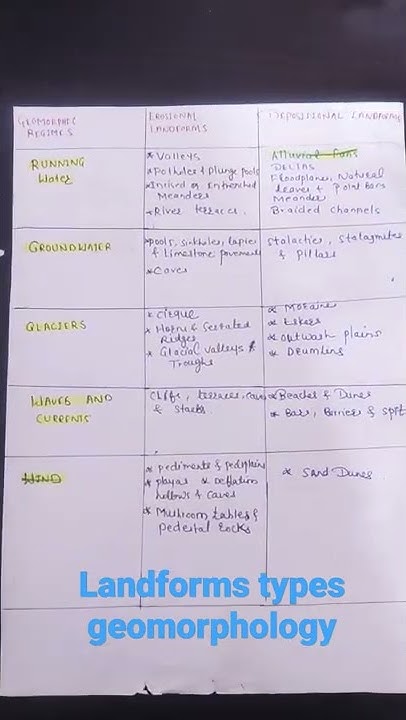 GEOMORPHIC REGIMES
EROSIONAL LANDFORMS
DEPOSITIONAL LANDFORMS
RUNNING Water
* Valleys
* Potholes & plunge pools
* Incised or Entrenched Meanders
* River terraces.
Alluvial Fans
DELTAS
Floodplains, Natural
levees & Point Bars
Meanders
Braided Channels
GROUNDWATER
* pools, sinkholes, lapies
& limestone pavements
* Caves
Stalactites, Stalagmites
& Pillars
GLACIERS
* Cirque
* Horns & Serrated
Ridges
* Glacial Valleys &
Troughs
* Moraines
* Eskers
* Outwash plains
* Drumlins
WAVES AND
CURRENTS
Cliffs, terraces, caves
& Stacks
* Beaches & Dunes
* Bars, Barriers & Spit
WIND
* pediments & pediplains
* playas * Deflation
hollows & caves
* Mushroom tables &
Pedestal Rocks
* Sand Dunes
Landforms types
geomorphology